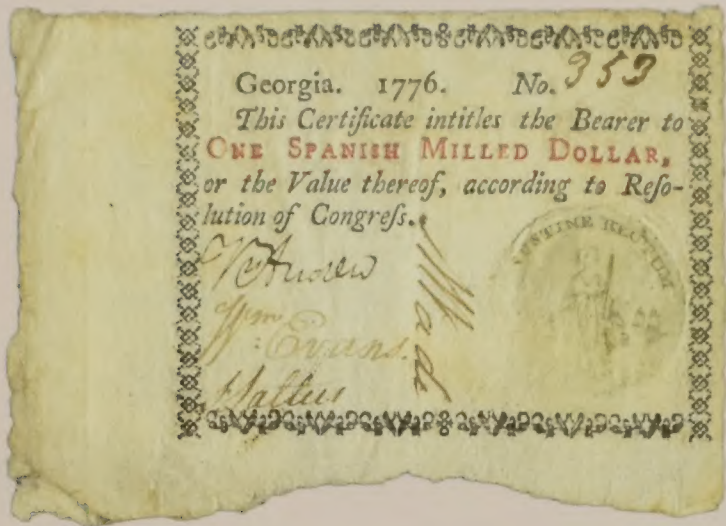 Georgia. 1776. No. 353
This Certificate intitles the Bearer to
ONE SPANISH MILLED DOLLAR,
or the Value thereof, according to Reſo-
lution of Congreſs.
Wm
Evans.
Wade
SUSTINE RECTUM